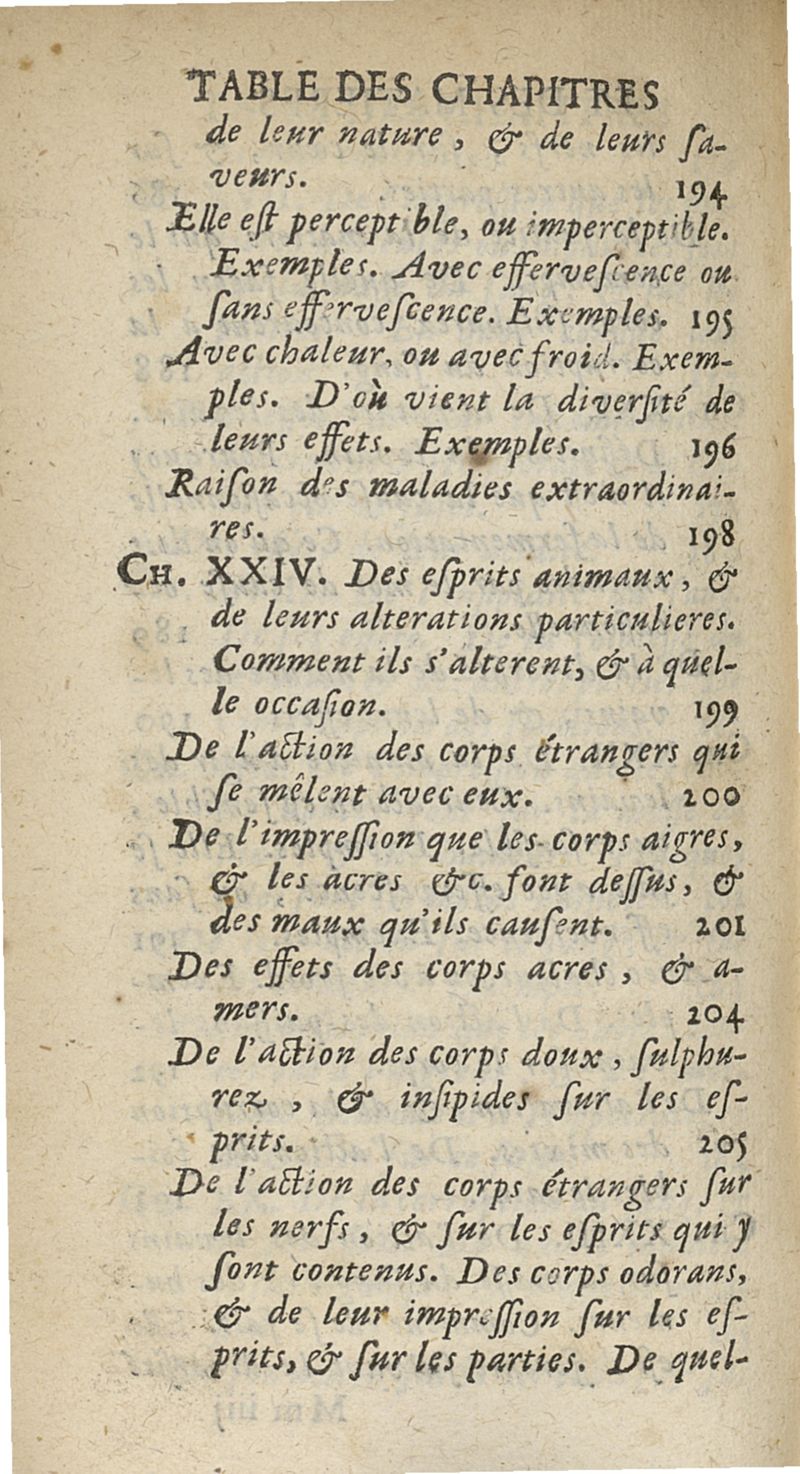 TABLE DES CHAPITRES
de leur nature, & de leurs ſa-
veurs. 194
Elle eſt perceptible, ou imperceptible.
Exemples. Avec effervefcence ou
ſans efferveſcence. Exemples. 195
Avec chaleur, ou avec froid. Exem-
ples. D'où vient la diverſité de
leurs effets. Exemples. 196
Raiſon des maladies extraordinai-
res. 198
CH. XXIV. Des eſprits animaux, &
de leurs alterations particulieres.
Comment ils s'alterent, & à quel-
le occaſion. 199
De l'action des corps étrangers qui
ſe mêlent avec eux. 200
De l'impreſſion que les corps aigres,
& les acres &c. font deſſus, &
des maux qu'ils cauſent. 201
Des effets des corps acres, & a-
mers. 204
De l'action des corps doux, ſulphu-
rez, & inſipides ſur les eſ-
prits. 205
De l'action des corps étrangers ſur
les nerfs, & ſur les eſprits qui y
ſont contenus. Des corps odorans,
& de leur impreſſion ſur les eſ-
prits, & ſur les parties. De quel-